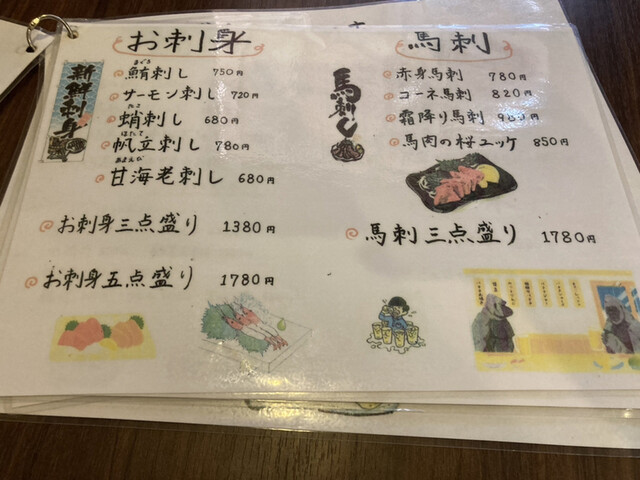 お刺身
新鮮お刺身
まぐろ
鮪刺し 750円
サーモン刺し 720円
たこ
蛸刺し 680円
ほたて
帆立刺し 780円
あまえび
甘海老刺し 680円
お刺身三点盛り 1380円
お刺身五点盛り 1780円
馬刺
馬刺し
赤身馬刺 780円
コーネ馬刺 820円
霜降り馬刺 980円
馬肉の桜ユッケ 850円
馬刺三点盛り 1780円